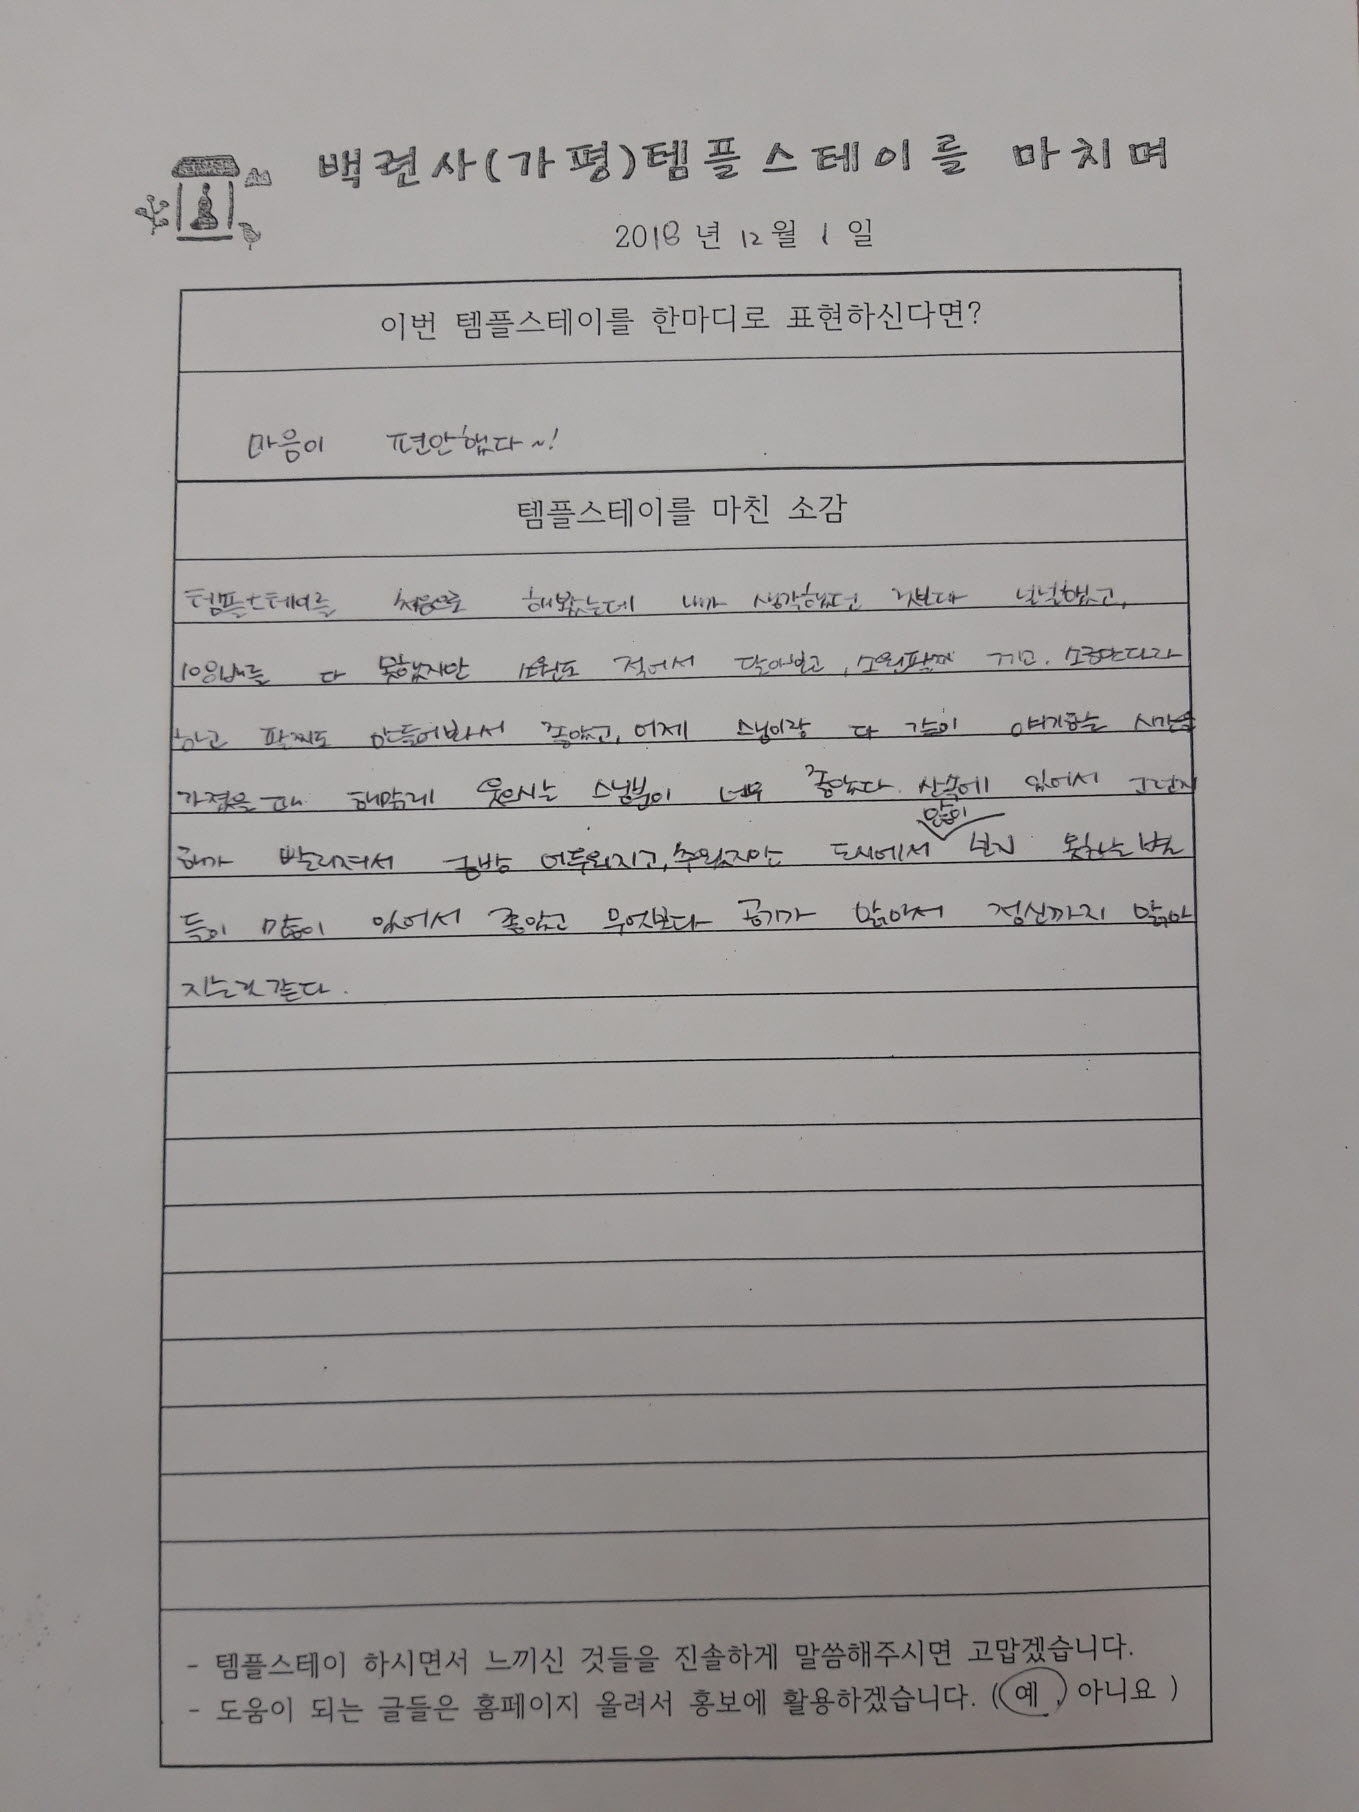 백련사(가평)템플스테이를 마치며
2018년 12월 1일
이번 템플스테이를 한마디로 표현하신다면?
마음이 편안했다~!
템플스테이를 마친 소감
템플스테이를 처음으로 해봤는데 내가 생각했던 것보다 널널했고,
108배를 다 못했지만 소원도 적어서 달아보고, 소원팔찌 끼고. 소금만다라
하고 팔찌도 만들어봐서 좋았고, 어제 스님이랑 다 같이 얘기하는 시간을
가졌을 때 해맑게 웃으시는 스님분이 너무 좋았다. 산속에 있어서 그런지
해가 빨리져서 금방 어두워지고, 추웠지만 도시에서 많이 보지 못하는 별
들이 많이 있어서 좋았고 무엇보다 공기가 맑아서 정신까지 맑아
지는것 같다.
- 템플스테이 하시면서 느끼신 것들을 진솔하게 말씀해주시면 고맙겠습니다.
- 도움이 되는 글들은 홈페이지 올려서 홍보에 활용하겠습니다. (예, 아니요)